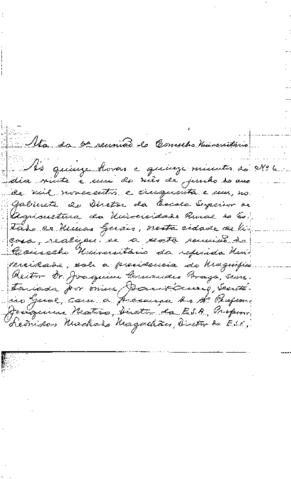 Ata da 6ª reunião do Conselho Universitário
Às quinze horas e quinze minutos do Nº 6
dia vinte e um do mês de junho do ano
de mil novecentos e cinquenta e um, no
gabinete do Diretor da Escola Superior de
Agricultura da Universidade Rural do Es-
tado de Minas Gerais, nesta cidade de Vi-
çosa, realizou-se a sexta reunião do
Conselho Universitário da referida Uni-
versidade, sob a presidência do Magnífico
Reitor Dr. Joaquim Fernandes Braga, secre-
tariada por mim, Secretá-
rio Geral, com a presença dos Professor
Joaquim Matoso, Diretor da E.S.A., Professor
Leônidas Machado Magalhães, Diretor do E.S.V.,